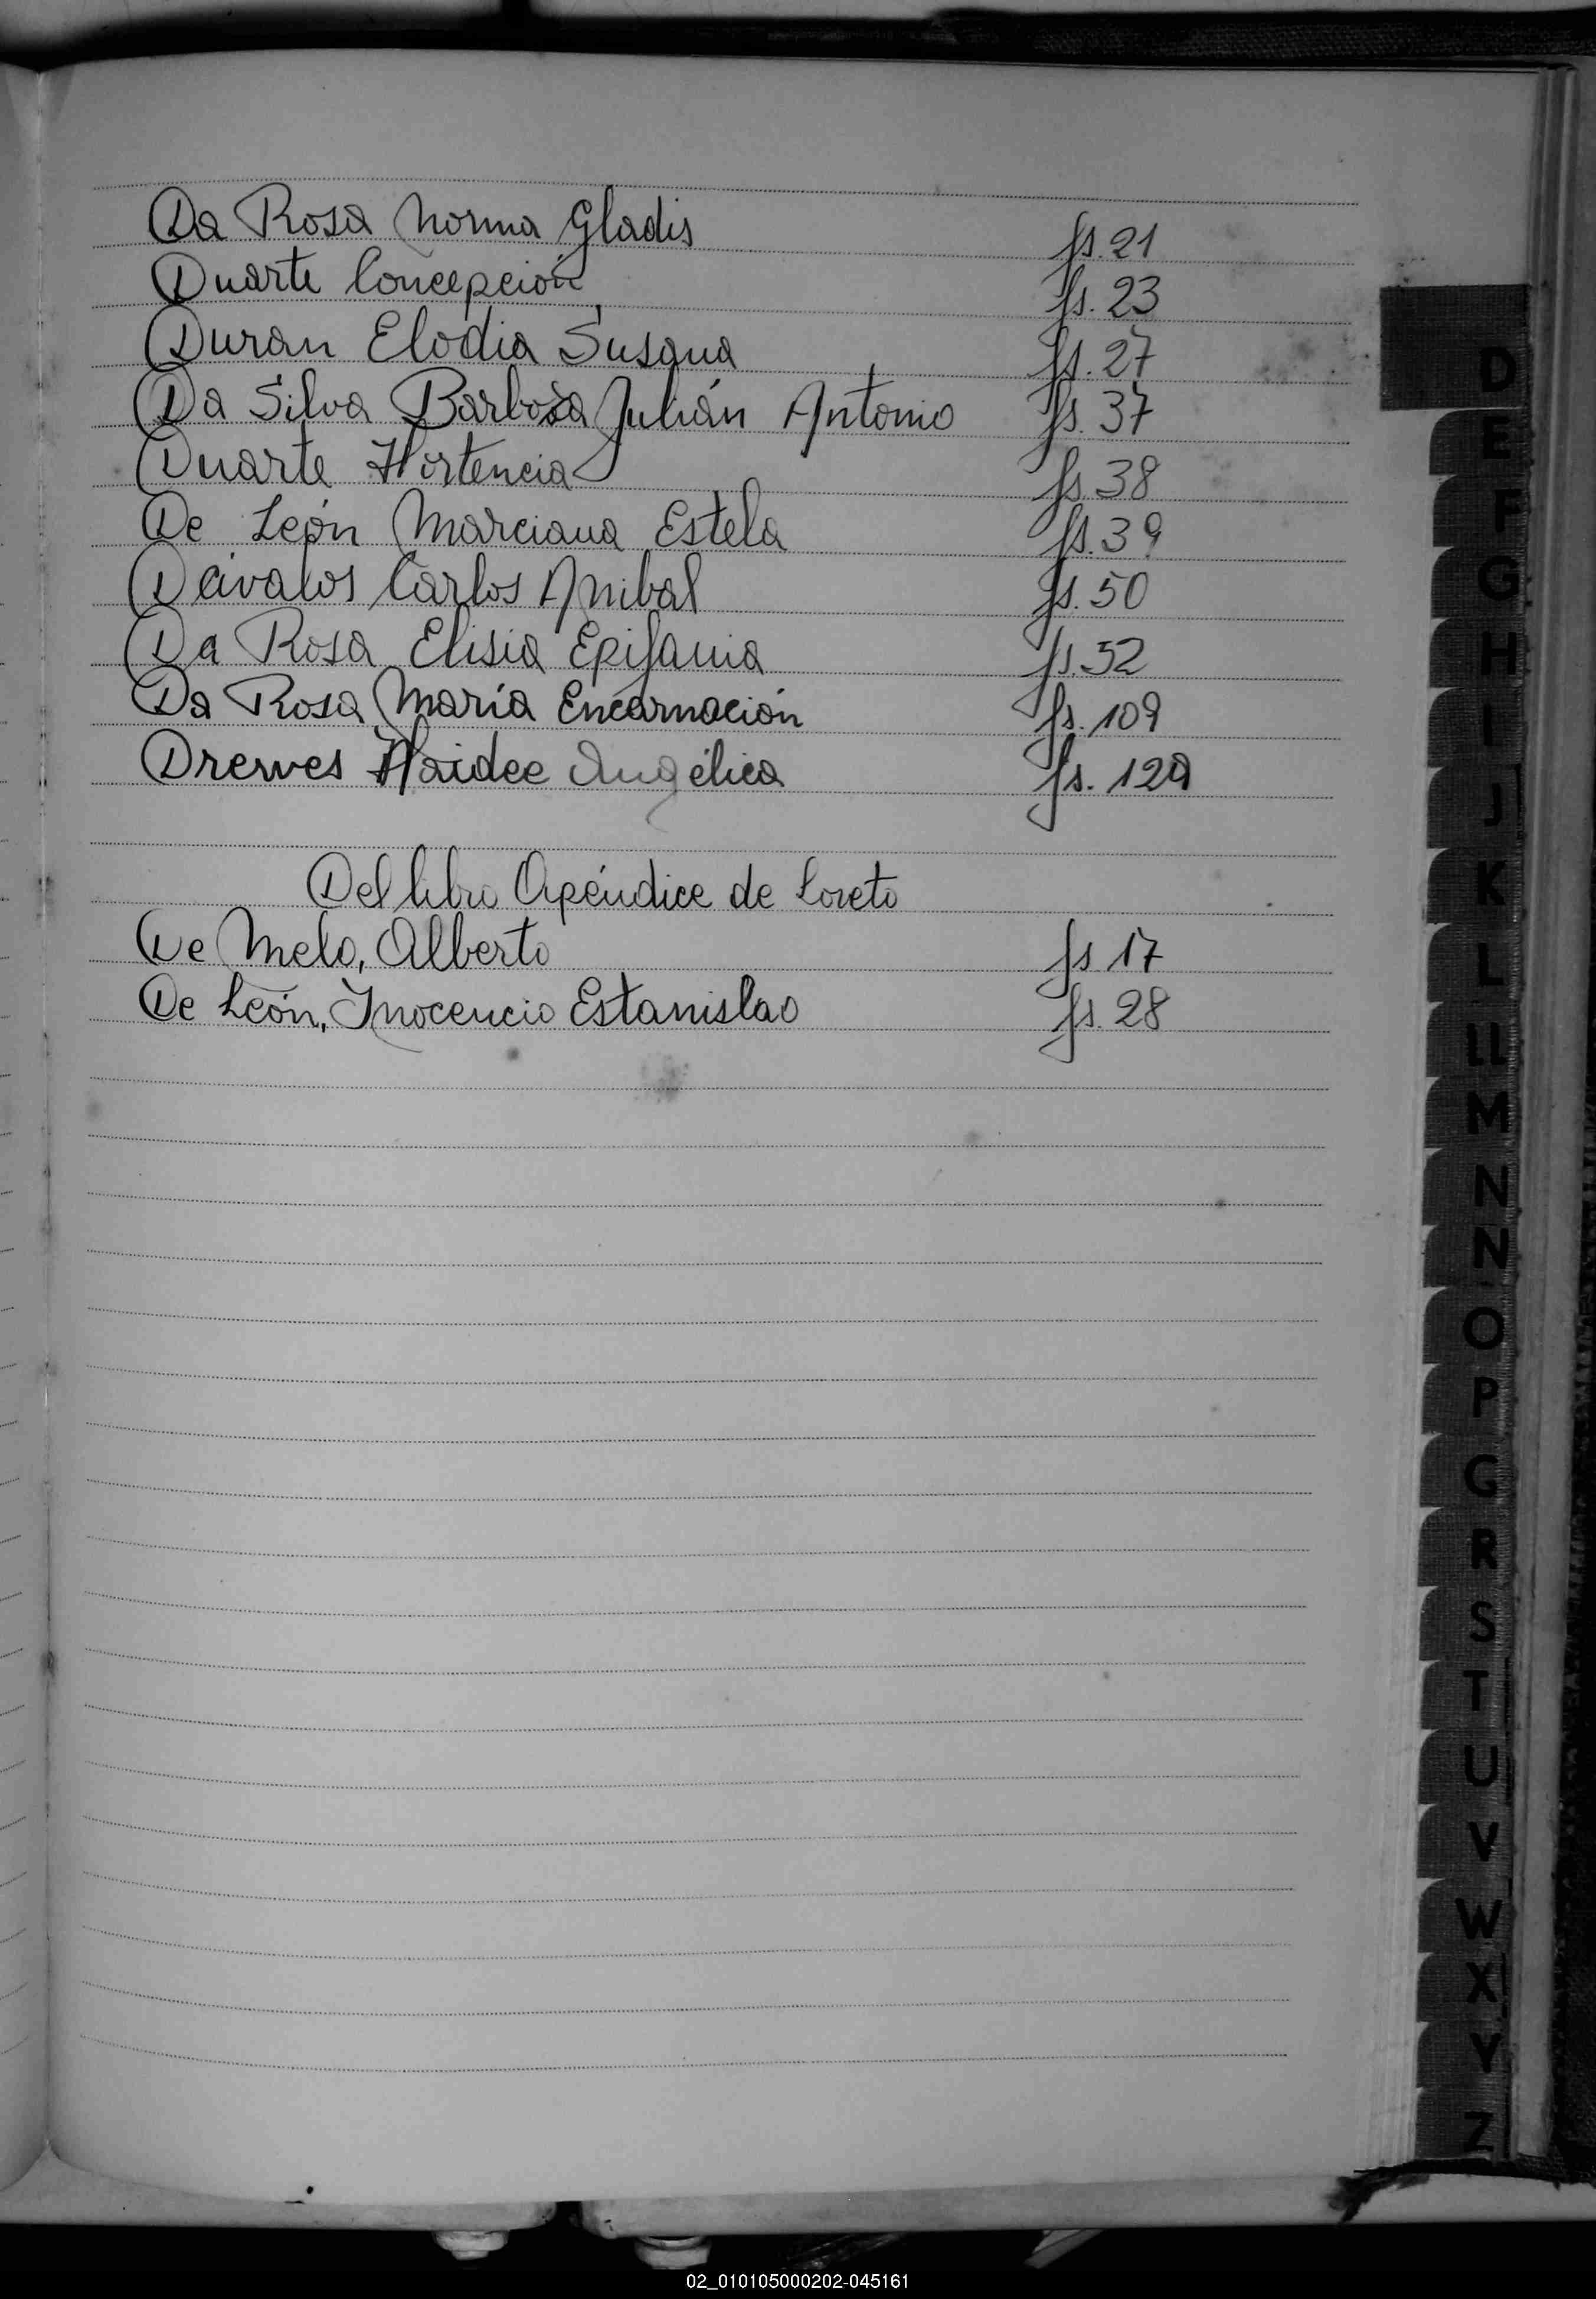 Da Rosa Norma Gladis fs. 21
Duarte Concepción fs. 23
Duran Elodia Susana fs. 27
Da Silva Barbosa Julián Antonio fs. 37
Duarte Hortencia fs. 38
De León Marciana Estela fs. 39
Dávalos Carlos Anibal fs. 50
Da Rosa Elisia Epifania fs. 52
Da Rosa María Encarnación fs. 109
Drewes Haidee Angélica fs. 129
Del libro Apéndice de Loreto
De Melo, Alberto fs 17
De León, Inocencio Estanislao fs. 28
D
E
F
G
H
I
J
K
L
LL
M
N
Ñ
O
P
Q
R
S
T
U
V
W
X
Y
Z
02_010105000202-045161